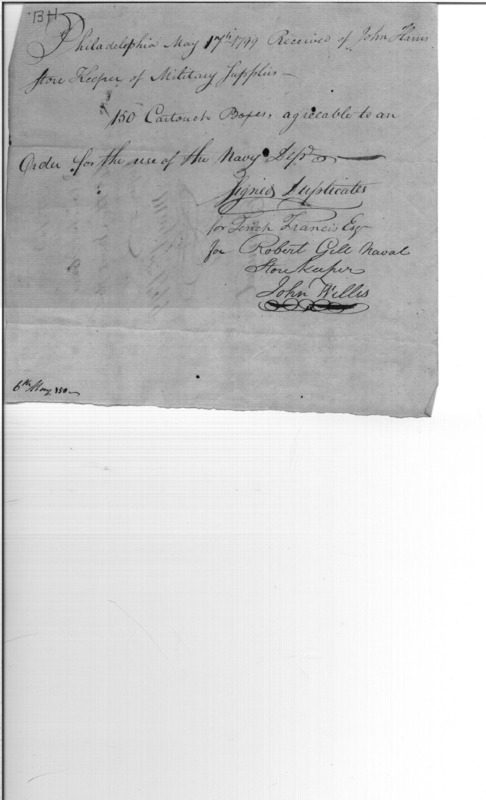 Philadelphia May 17th 1799 Received of John Harris
Store Keeper of Military Supplies —
150 Cartouch Boxes, agreeable to an
Order for the use of the Navy Dept
Signed Duplicates
for Tench Francis Esqr
for Robert Gill Naval
Storekeeper
John Willis
6th May 150